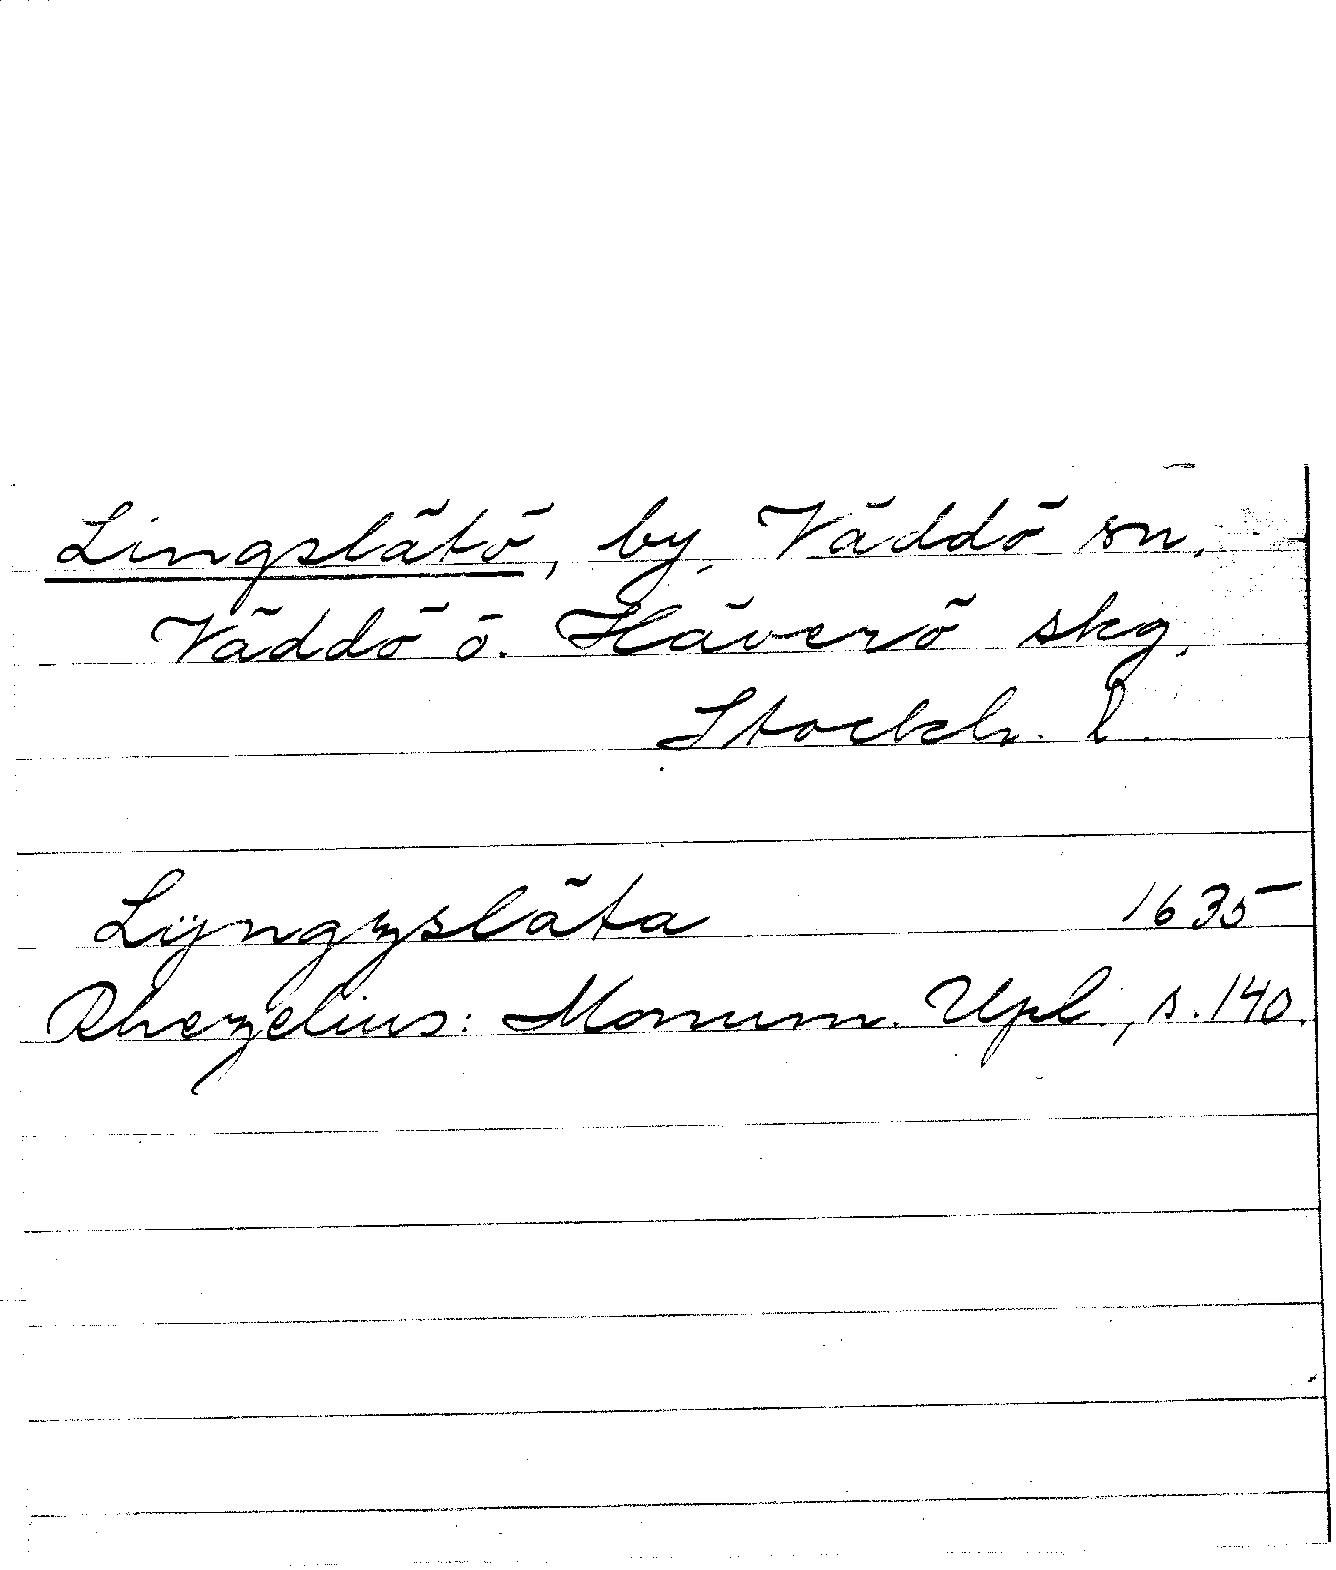 Lingslätö, by, Väddö sn,
Väddö o. Häverö skg,
Stockh. l.
Lÿngzsläta 1635
Rhezelius: Monum. Upl., s. 140.